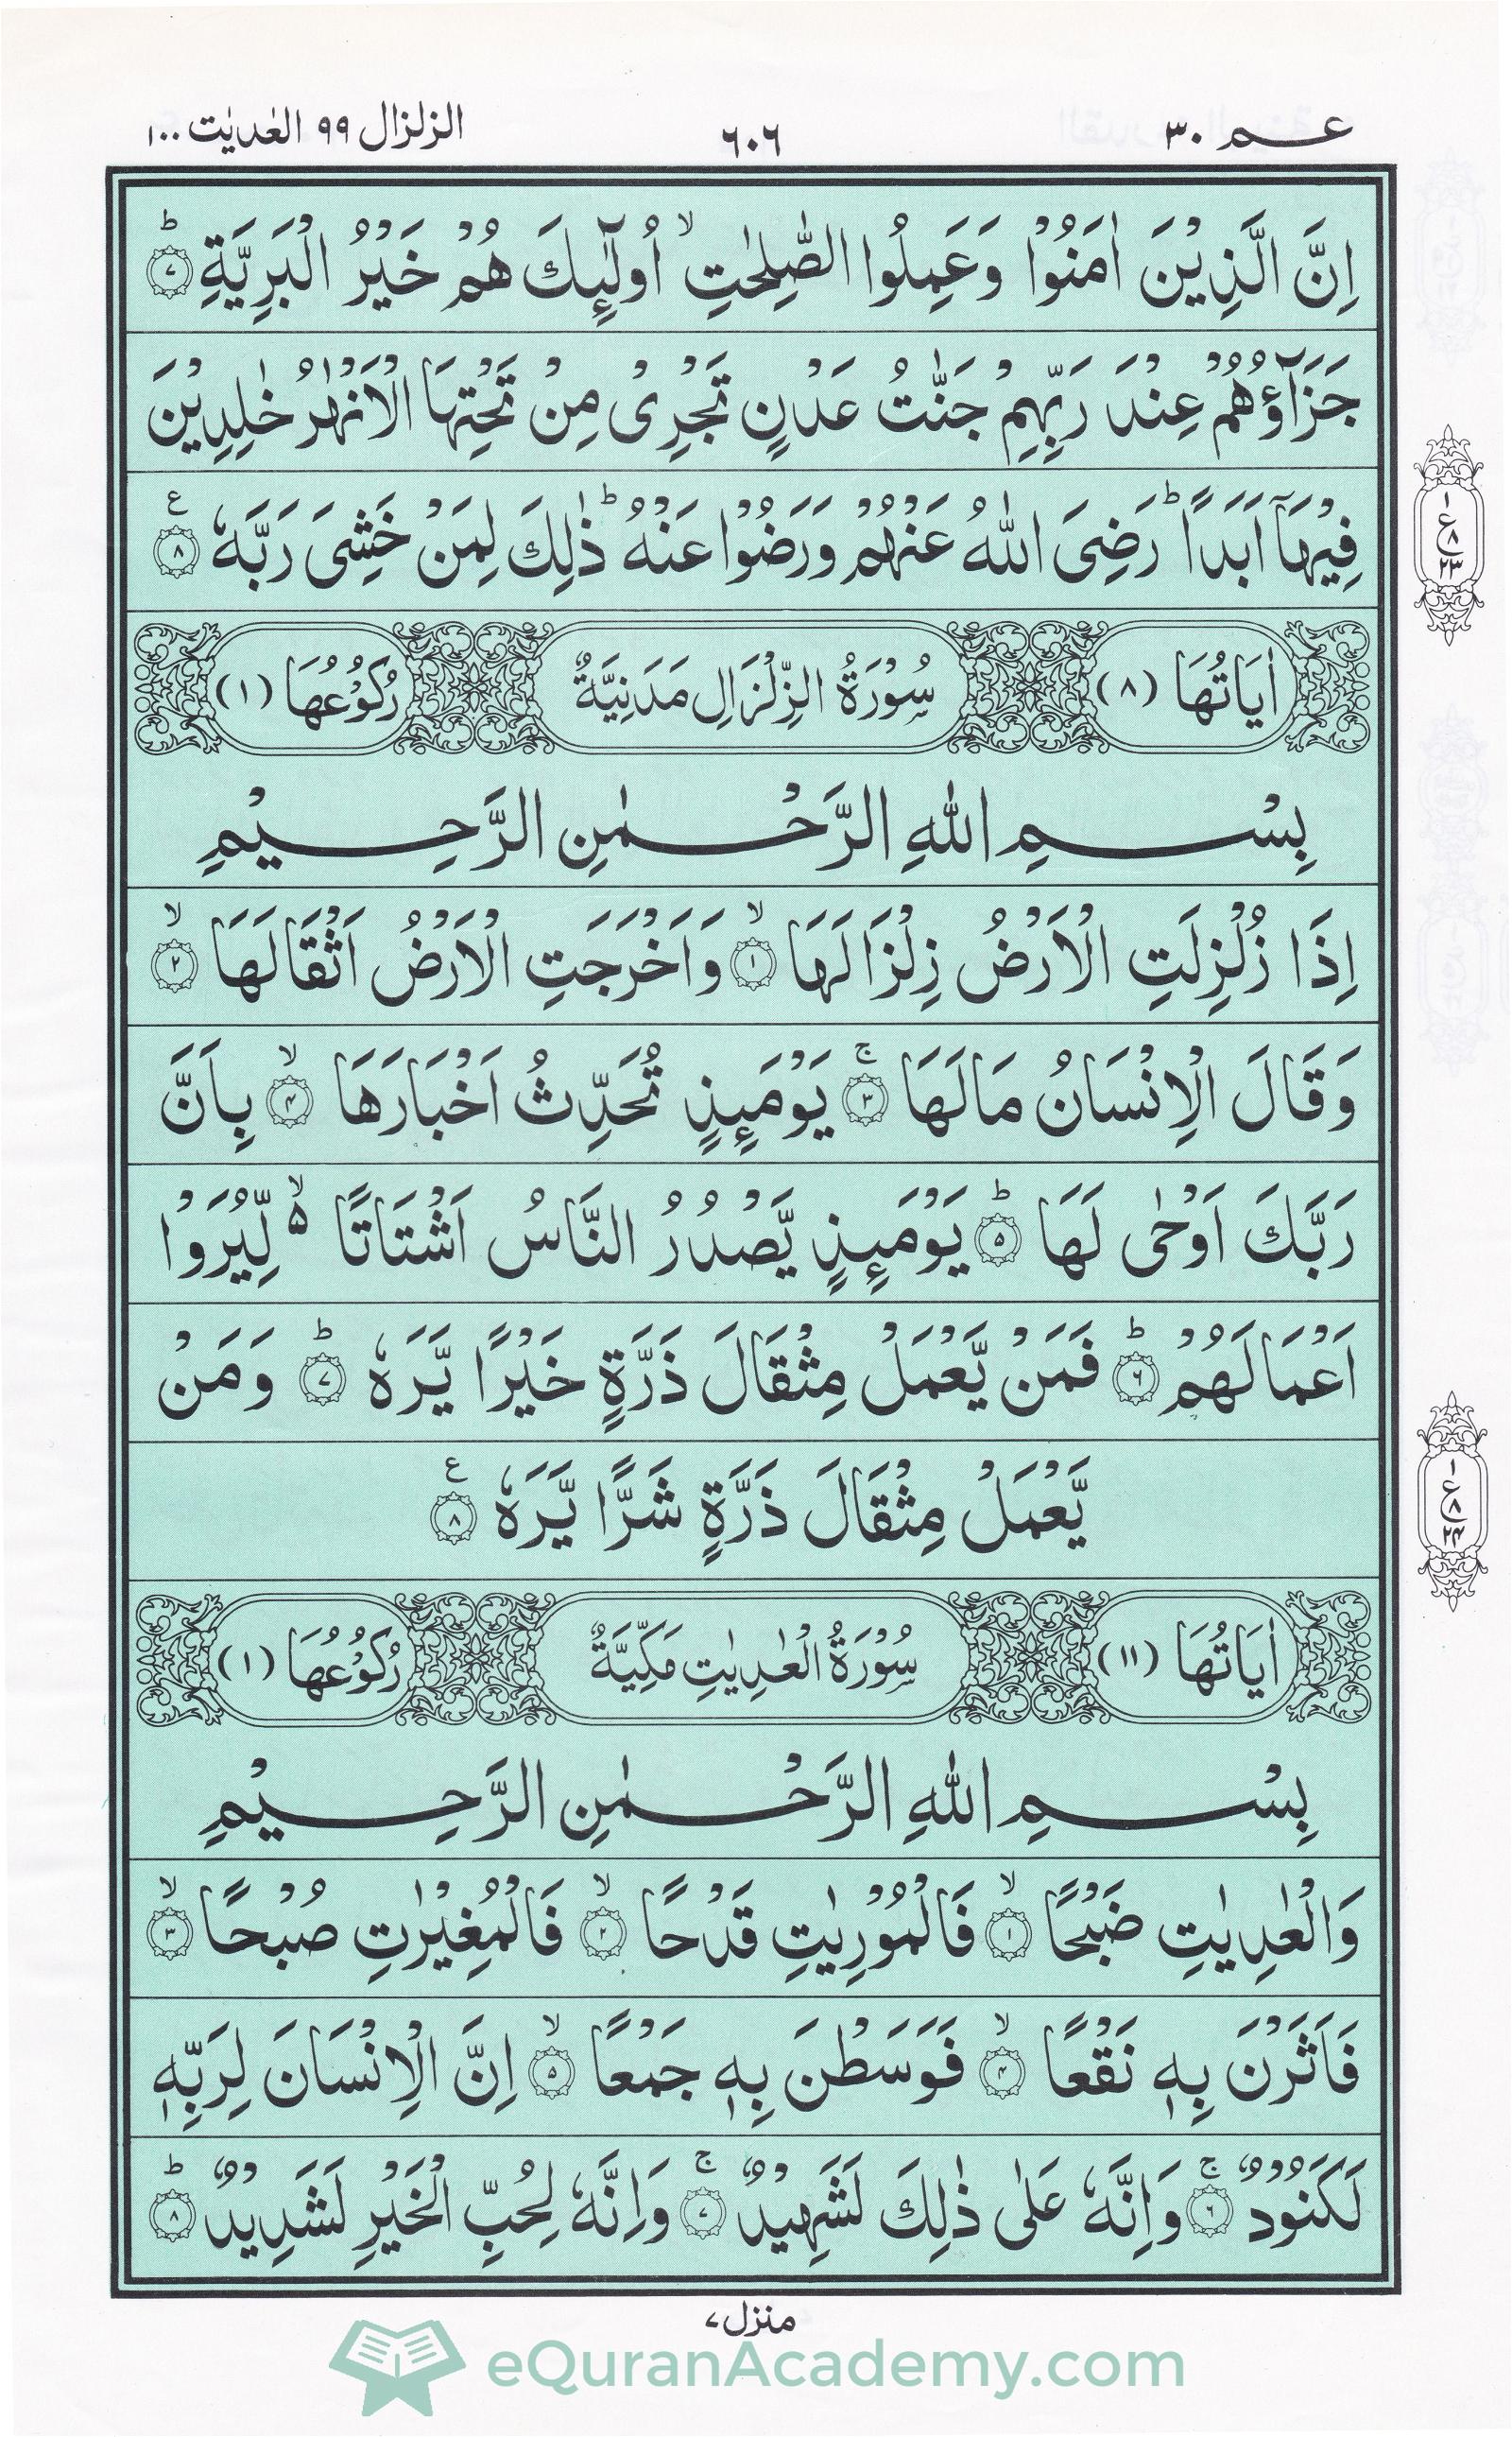 عم ٣٠
٦٠٦
الزلزال ٩٩ العٰديٰت ١٠٠
اِنَّ الَّذِيْنَ اٰمَنُوْا وَعَمِلُوا الصّٰلِحٰتِ ۙ اُولٰٓئِكَ هُمْ خَيْرُ الْبَرِيَّةِ ؕ ٧
جَزَآؤُهُمْ عِنْدَ رَبِّهِمْ جَنّٰتُ عَدْنٍ تَجْرِيْ مِنْ تَحْتِهَا الْاَنْهٰرُ خٰلِدِيْنَ
فِيْهَآ اَبَدًا ؕ رَضِيَ اللّٰهُ عَنْهُمْ وَرَضُوْا عَنْهُ ؕ ذٰلِكَ لِمَنْ خَشِيَ رَبَّهٗ ٨ ع
١ ع ٨ ٢٣
اٰيَاتُهَا (٨) سُوْرَةُ الزِّلْزَالِ مَدَنِيَّةٌ رُكُوْعُهَا (١)
بِسْمِ اللّٰهِ الرَّحْمٰنِ الرَّحِيْمِ
اِذَا زُلْزِلَتِ الْاَرْضُ زِلْزَالَهَا ۙ ١ وَاَخْرَجَتِ الْاَرْضُ اَثْقَالَهَا ۙ ٢
وَقَالَ الْاِنْسَانُ مَا لَهَا ۚ ٣ يَوْمَئِذٍ تُحَدِّثُ اَخْبَارَهَا ۙ ٤ بِاَنَّ
رَبَّكَ اَوْحٰى لَهَا ؕ ٥ يَوْمَئِذٍ يَّصْدُرُ النَّاسُ اَشْتَاتًا ۙ ٥ لِّيُرَوْا
اَعْمَالَهُمْ ؕ ٦ فَمَنْ يَّعْمَلْ مِثْقَالَ ذَرَّةٍ خَيْرًا يَّرَهٗ ؕ ٧ وَمَنْ
يَّعْمَلْ مِثْقَالَ ذَرَّةٍ شَرًّا يَّرَهٗ ٨ ع
١ ع ٨ ٢٤
اٰيَاتُهَا (١١) سُوْرَةُ الْعٰدِيٰتِ مَكِّيَّةٌ رُكُوْعُهَا (١)
بِسْمِ اللّٰهِ الرَّحْمٰنِ الرَّحِيْمِ
وَالْعٰدِيٰتِ ضَبْحًا ۙ ١ فَالْمُوْرِيٰتِ قَدْحًا ۙ ٢ فَالْمُغِيْرٰتِ صُبْحًا ۙ ٣
فَاَثَرْنَ بِهٖ نَقْعًا ۙ ٤ فَوَسَطْنَ بِهٖ جَمْعًا ۙ ٥ اِنَّ الْاِنْسَانَ لِرَبِّهٖ
لَكَنُوْدٌ ۚ ٦ وَاِنَّهٗ عَلٰى ذٰلِكَ لَشَهِيْدٌ ۚ ٧ وَاِنَّهٗ لِحُبِّ الْخَيْرِ لَشَدِيْدٌ ؕ ٨
منزل ٧
eQuranAcademy.com